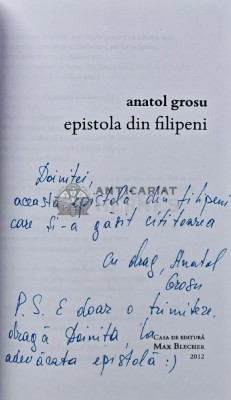 anatol grosu
epistola din filipeni
Doiniței,
această epistola din filipeni
care și-a găsit cititoarea
Cu drag, Anatol
Grosu
P.S. E doar o trimitere.
dragă Doiniță, la
adevărata epistolă :)
ANTICARIAT
CASA DE EDITURĂ
MAX BLECHER
2012